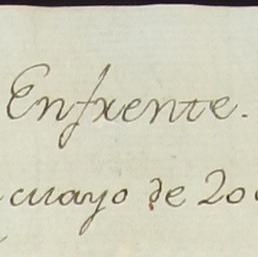 Enfrente.
cuayo de 20